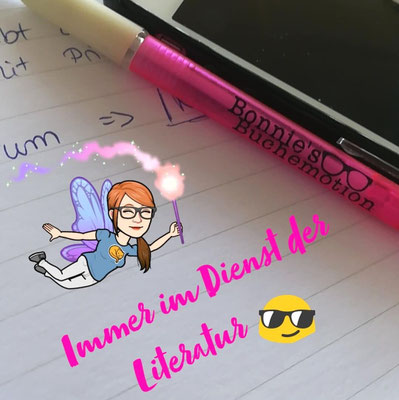 um =>
Bonnie's
Buchemotion
Immer im Dienst der
Literatur